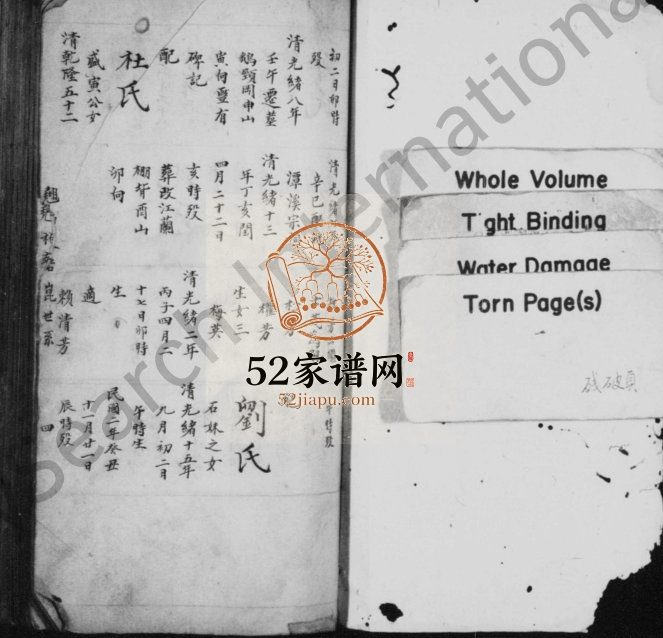 初二日卯時
殁
清光緒八年
壬午遷墓
鵝頸岡申山
寅向豎有
碑記
配
杜氏
盛寅公女
清乾隆五十二
清光緒
辛巳
潭溪宗
清光緒十三
年丁亥閏
四月二十二日
亥時殁
葬改江蘭
棚背酉山
卯向
權芳
生女三
梅英
清光緒二年
丙子四月二
十七日卯時
生
適
賴清芳
崑世系
時殁
劉氏
石妹之女
清光緒十五年
九月初二日
午時生
民國二年癸丑
十一月廿一日
辰時殁
四
Whole Volume
Tight Binding
Water Damage
Torn Page(s)
残破頁
52家谱网
52jiapu.com
Search International